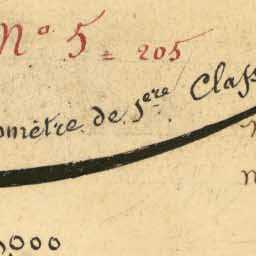 Nº 5 = 205
omètre de 1ère Class
0,000